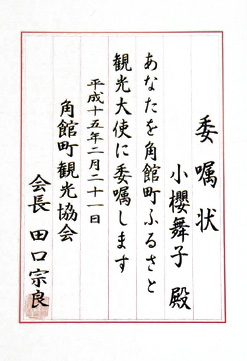 委嘱状
小櫻舞子 殿
あなたを角館町ふるさと
観光大使に委嘱します
平成十五年二月二十一日
角館町観光協会
会長 田口宗良